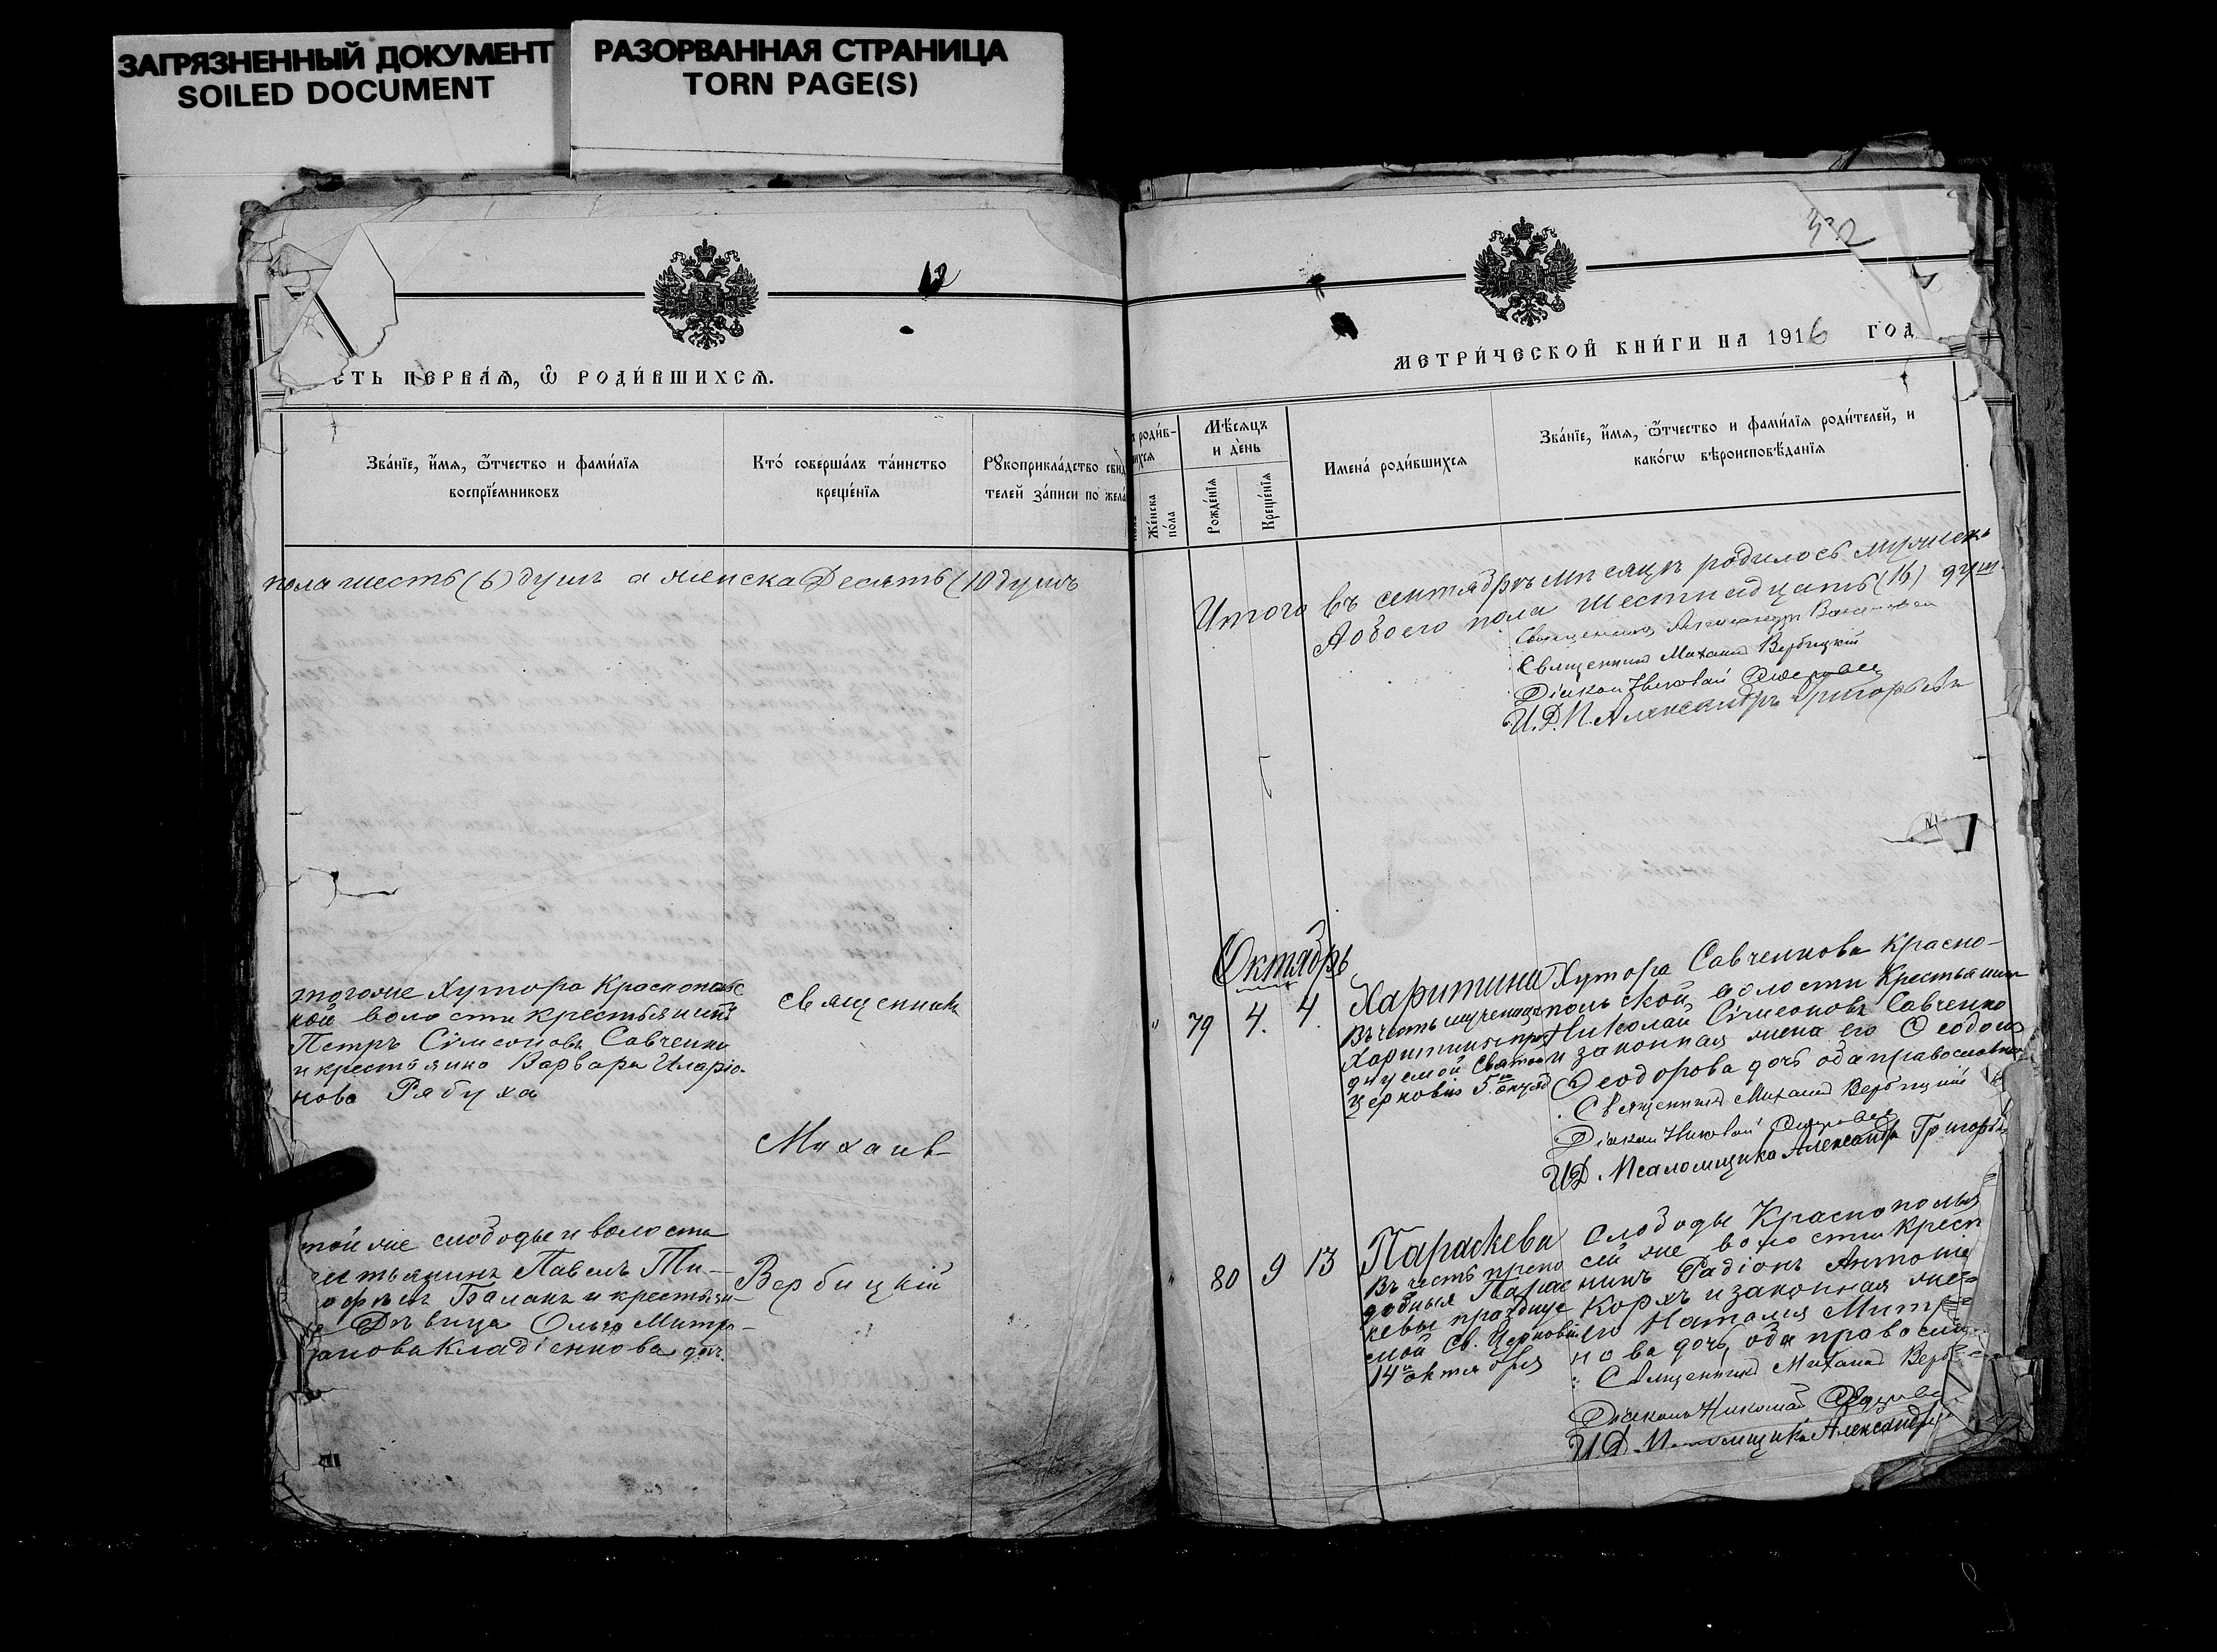 ЗАГРЯЗНЕННЫЙ ДОКУМЕНТ
SOILED DOCUMENT
РАЗОРВАННАЯ СТРАНИЦА
TORN PAGE(S)
СТЬ ПЕРВАЯ, Ѿ РОДИВШИХСЯ.
Званїе, имя, ѿчество и фамилїя
воспрїемниковъ
Кто совершалъ таинство
крещенїя
Рукоприкладство свид
телей записи по жела
пола шесть (6) душъ а женска Десять (10 душъ
того же Хутора Краснополь
кой волости крестьянинъ
Петръ Сімеоновъ Савченко
и крестьянка Варвара Иларіо-
нова Рябуха
Священникъ
Михаил
Вербицкій
той же слободы и волости
Павелъ Ти-
Баланъ и крестьян-
Дѣвица Ольга Митро-
фанова
32
МЕТРИЧЕСКОЙ КНИГИ НА 1916 ГОД
родив-
шихся
Женска
пола
Мѣсяцъ
и день
Рожденїя
Крещенїя
Имена родившихся
Званїе, имя, ѿчество и фамилїя родителей, и
какогѡ вѣроисповѣданїя
Итого въ сентябрѣ мѣсяцѣ родилось мужска
А обоего пола шестнадцать (16) душ
Священникъ
Священникъ Михаил Вербицкій
Діакон Николай
И.Д.П. Александръ Григорьевъ
Октябрь
79 4. 4. Харитина
Въ честь мученицы
Харитины празд
дуемой Святою
церковію 5го октяб
Хутора Савченкова Красно-
польской волости Крестьянин
Николай Сімеоновъ Савченко
и законная жена его Ѳеодосія
Ѳеодорова дочь оба православн
Священникъ Михаил Вербицкий
Діакон Николай
И.Д. Псаломщика Александр Григорьев
80 9 13 Параскева
Въ честь препо
добныя Парас
кевы празднуе
мой Св. Церковію
14го октября
Слободы Краснополья
сей же волости крест
нинъ Радіонъ Антоніе
Коржъ и законная же
его Наталія Митр
нова дочь, оба правосла
Священникъ Михаил Верб
Діаконъ Николай
И.Д. Псаломщика Александръ